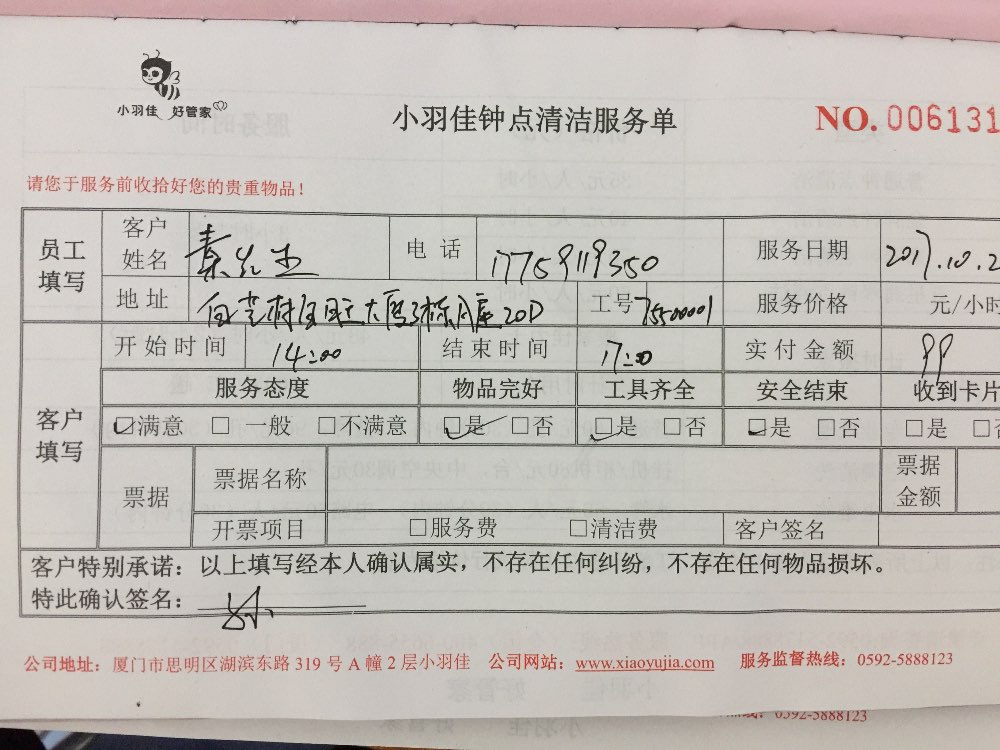 小羽佳 好管家
小羽佳钟点清洁服务单
NO. 006131
请您于服务前收拾好您的贵重物品！
员工填写 客户姓名 秦先生 电话 17759119350 服务日期 2017.10.2
地址 大厦3栋 20D 工号 75500001 服务价格 元/小时
客户填写 开始时间 14:00 结束时间 17:00 实付金额 99
服务态度 物品完好 工具齐全 安全结束 收到卡片
☑满意 □一般 □不满意 ☑是 □否 ☑是 □否 ☑是 □否 □是 □否
票据 票据名称 票据金额
开票项目 □服务费 □清洁费 客户签名
客户特别承诺：以上填写经本人确认属实，不存在任何纠纷，不存在任何物品损坏。
特此确认签名：
公司地址：厦门市思明区湖滨东路 319 号 A 幢 2 层小羽佳 公司网站：www.xiaoyujia.com 服务监督热线：0592-5888123
热线：0592-5888123